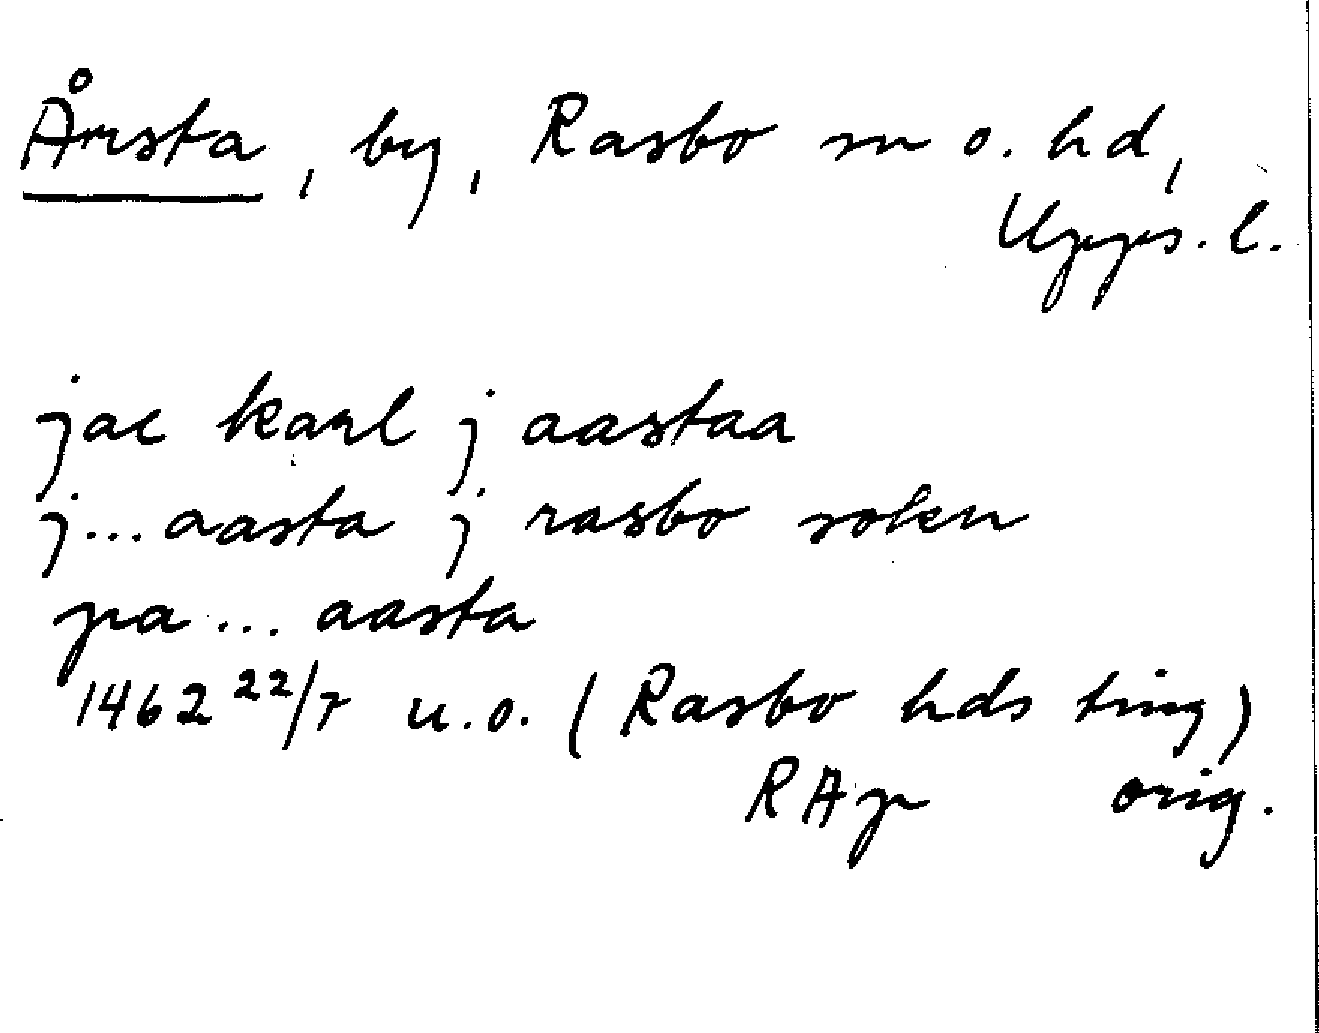 Årsta, by, Rasbo sn o. hd,
Upps. l.
jac karl j aastaa
j... aasta j rasbo sokn
pa ... aasta
1462 22/7 u.o. (Rasbo hds ting)
RAp orig.